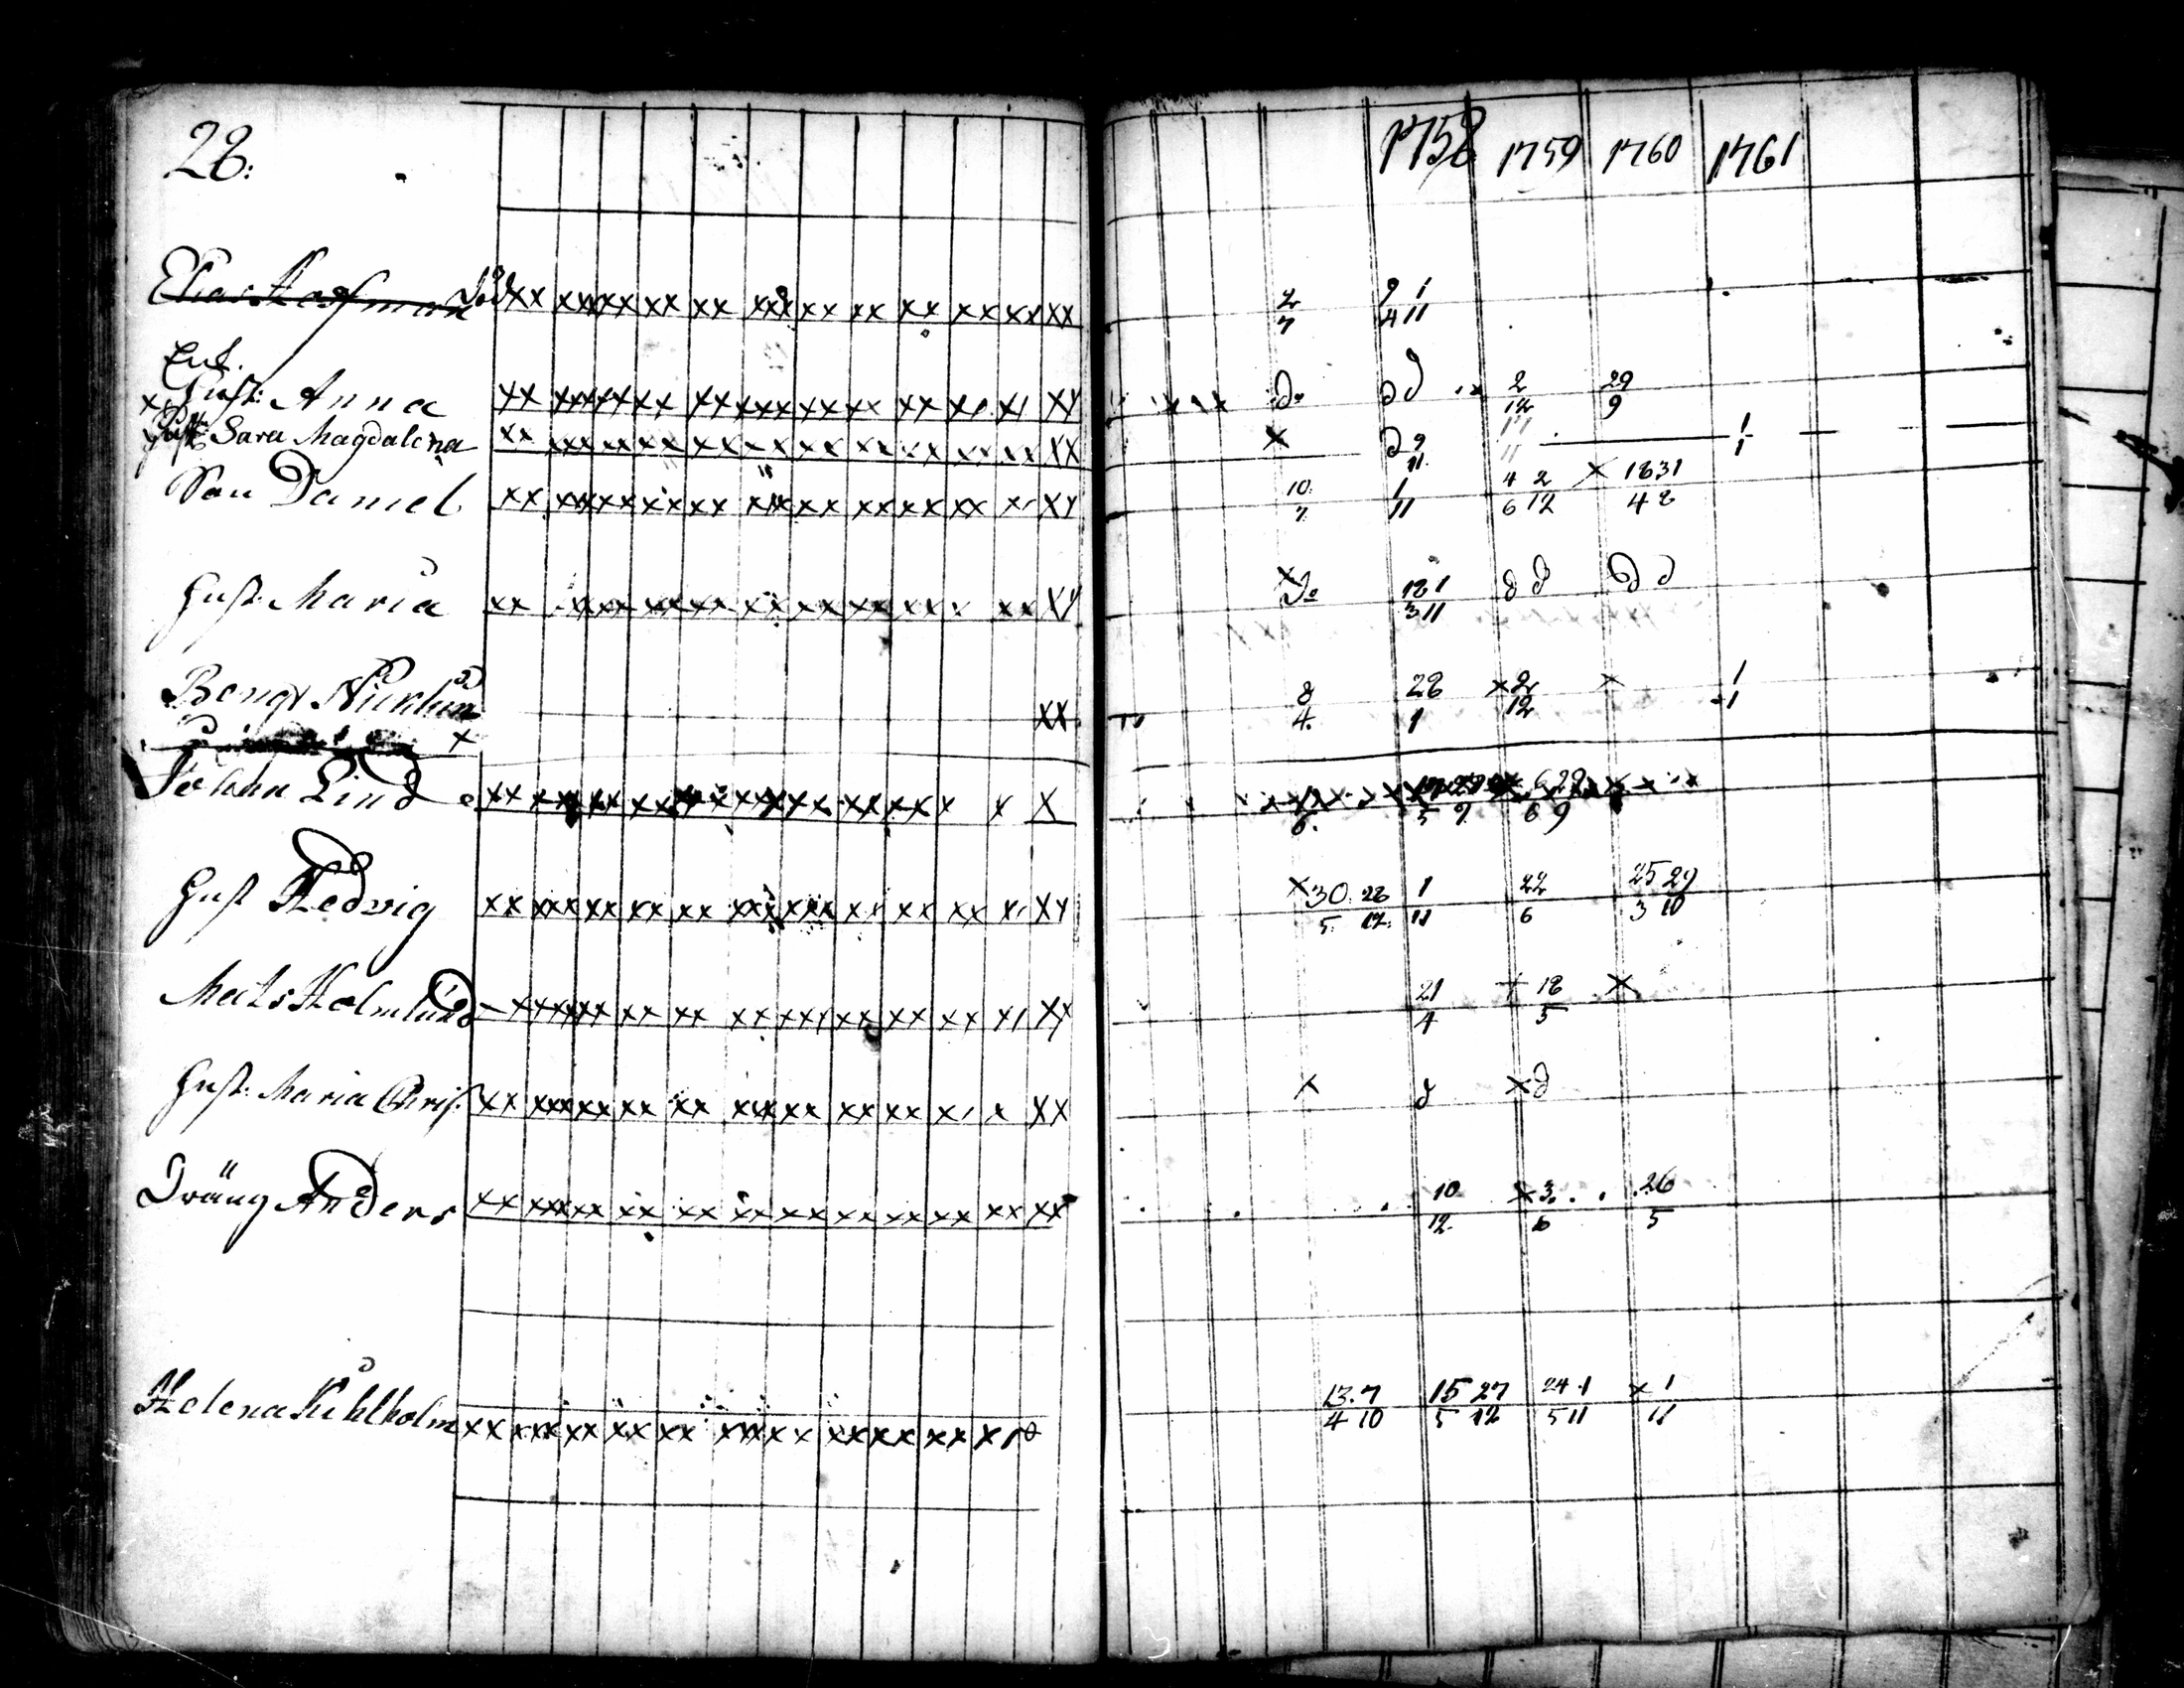 28.
1758 1759 1760 1761
Elias Hofman död xx xxxxx xx xx xxx xx xx xx xx xx xx 2/7 9/4 1/11
Enk.
x Hust: Anna xx xxxxx xx xx xxx xx xx xx x xx do d d 2/12 29/9
Sara Magdalena xx xxx xx xx xx xx xx xx xx xx xx XX x d 9/11 17/11 1/1
Son Daniel xx xxx xx xx xx xxx xx xx xx xx x XX 10/7 1/11 4/6 2/12 x 18/4 31/8
Hust. Maria xx xxx xx xx xx xx xx xx x xx XX x do 18/3 1/11 d d d d
Bengt XX 8/4 28/1 x 2/12 x 1/1
x
Johan Lind xx xxx xx xx xx xxx xx xx xx x x X
Hust Hedvig xx xxx xx xx xx xxx xxx xx xx xx x XX x 30/5 28/12 1/11 22/6 25/3 29/10
Mats Holmlund xxxxxx xx xx xx xxx xx xx xx x XX 21/4 + 18/5 x
Hust. Maria Chris. xx xxx xx xx xx xxx xx xx xx x x XX x d x d
Dräng Anders xx xxx xx xx xx xx xx xx xx xx xx XX 10/12 x 3/6 26/5
Helena Kihlholm xx xxx xx xx xx xxx xx xx xx xx x 13/4 7/10 15/5 27/12 24/5 1/11 x 1/11